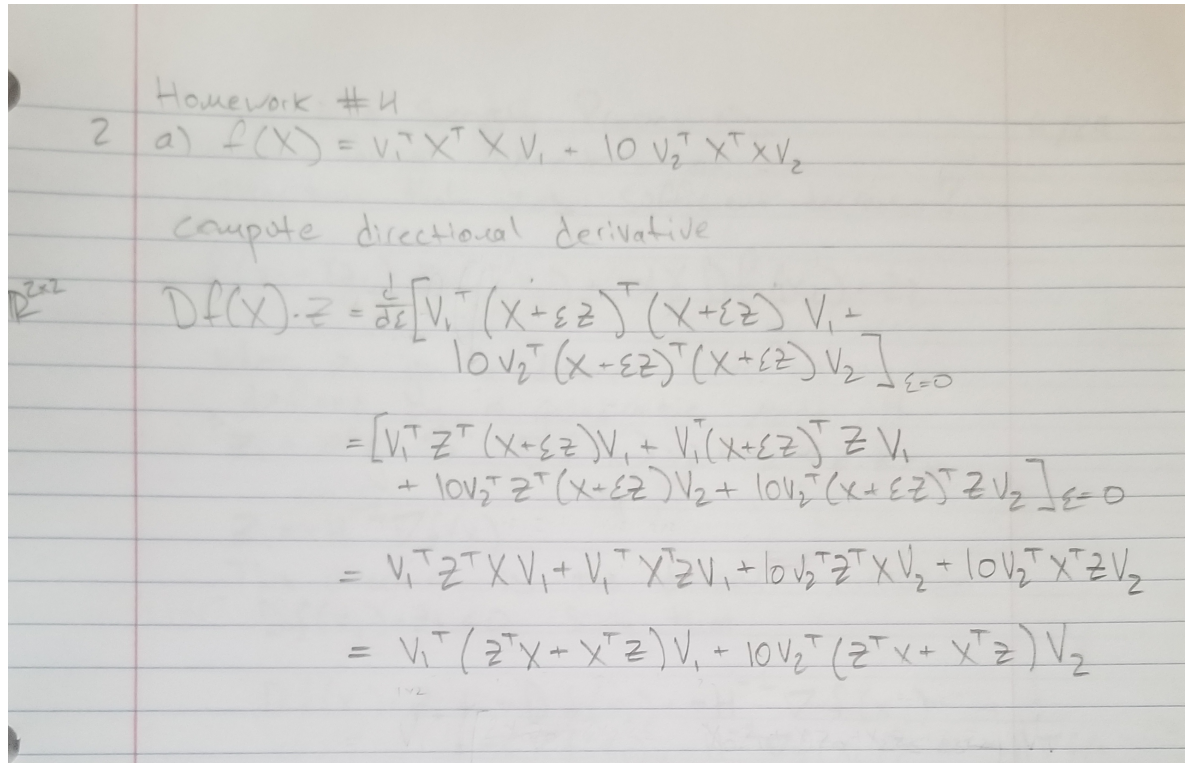 Homework #4
2 a) f(X) = V₁ᵀ Xᵀ X V₁ + 10 V₂ᵀ Xᵀ X V₂
compute directional derivative
ℝ²ˣ² Df(X)·Z = d/dε [V₁ᵀ (X+εZ)ᵀ (X+εZ) V₁ +
10 V₂ᵀ (X+εZ)ᵀ (X+εZ) V₂]ε=0
= [V₁ᵀ Zᵀ (X+εZ) V₁ + V₁ᵀ (X+εZ)ᵀ Z V₁
+ 10V₂ᵀ Zᵀ (X+εZ) V₂ + 10V₂ᵀ (X+εZ)ᵀ Z V₂]ε=0
= V₁ᵀ Zᵀ X V₁ + V₁ᵀ Xᵀ Z V₁ + 10 V₂ᵀ Zᵀ X V₂ + 10 V₂ᵀ Xᵀ Z V₂
= V₁ᵀ (Zᵀ X + Xᵀ Z) V₁ + 10 V₂ᵀ (Zᵀ X + Xᵀ Z) V₂